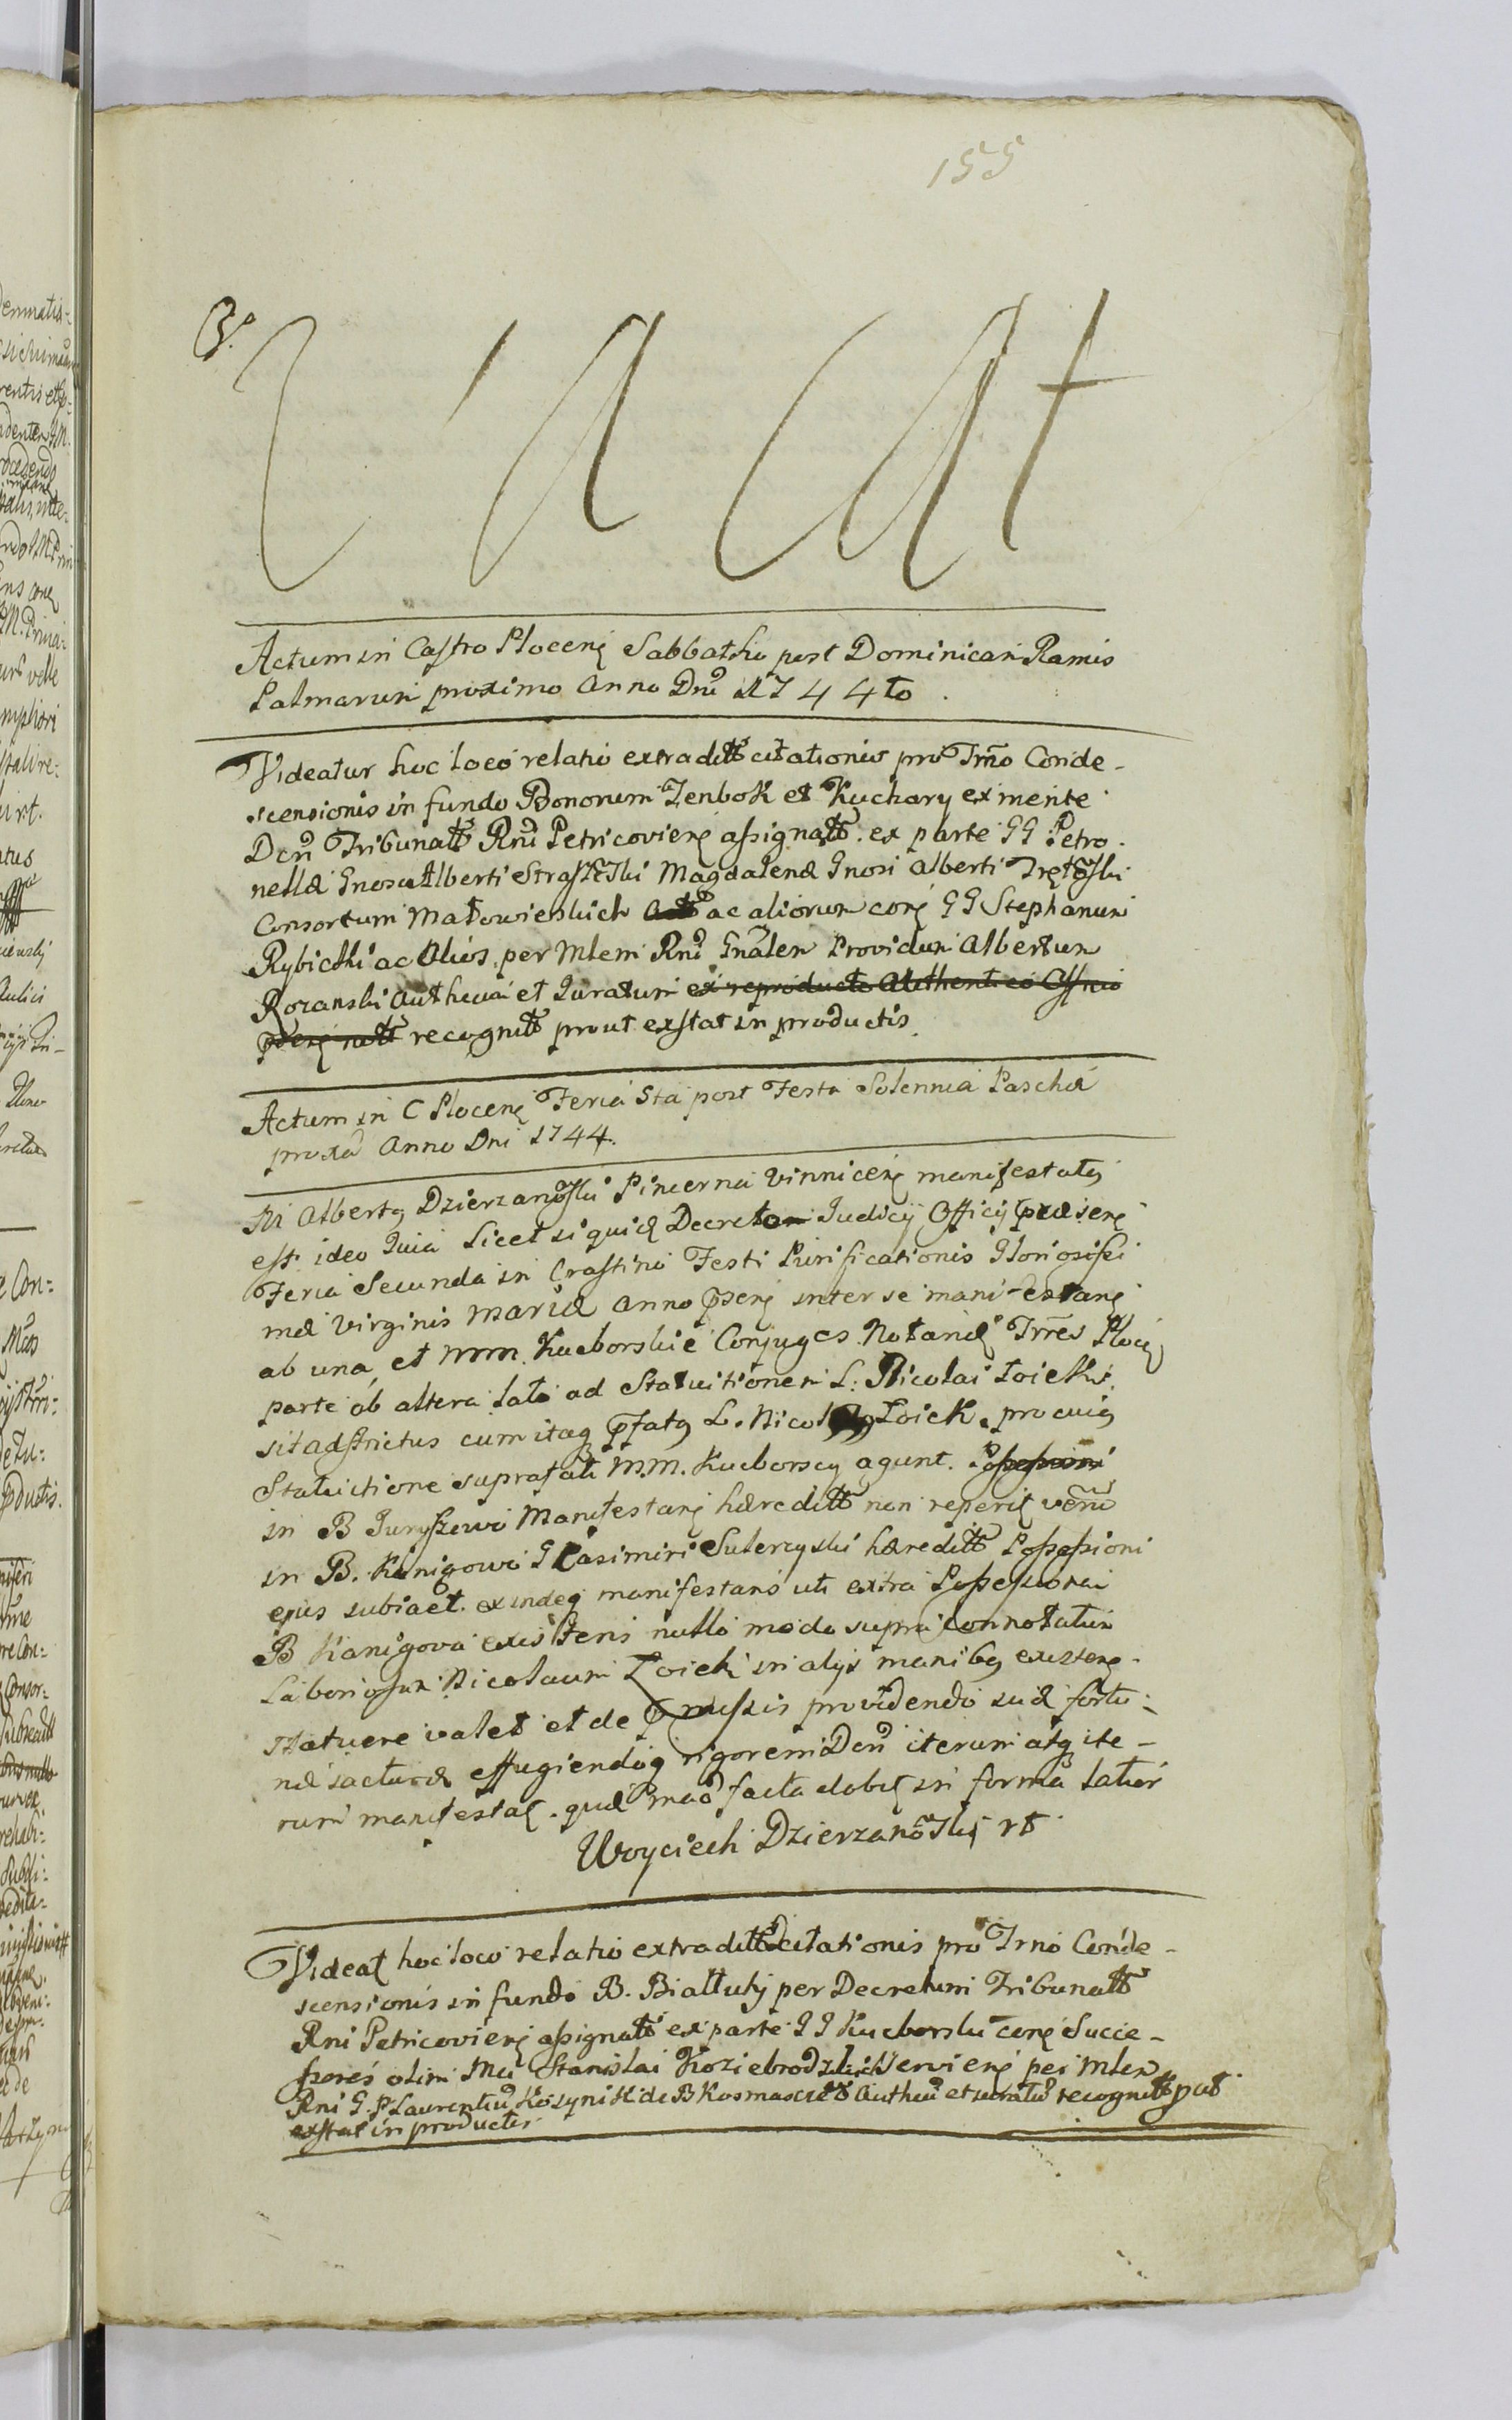 155
Vacat
Actum in Castro Plocens Sabbatho post Dominicam Ramis
Palmarum proximo Anno Dni 1744to.
Videatur hoc loco relatio extraditt citationis pro Trmo Conde-
scensionis in fundo Bonorum Zenbok et Kuchary ex mente
Dcri Tribunalt Rni Petricoviens assignatt. ex parte GG Petro-
nellæ Gnosi Alberti Magdalenæ Gnosi Alberti
Consortum Małowieskich ac aliorum cons GG Stephanum
Rybicki ac Alios. per Mlem Rni Gnalem Providum Albertum
Rozanski Authen et Juratum ex reproducto Authentico Officio
recognitt prout exstat in productis.
Actum in C Plocens Feria 5ta post Festa Solennia Paschæ
proxa Anno Dni 1744.
M Albertus Dzierzanowski Pincerna Vinnicens manifestatus
est. ideo Quia Licet siquid Decretum Judicij Officij præsens
Feria Secunda in Crastino Festi Purificationis Gloriosissi
mæ Virginis Mariæ Anno præsens inter se manifestans
ab una, et MM. Kucborskie Conjuges Notarios Trres Plocens
parte ab altera lato ad Statuitionem L: Nicolai Łoicki.
sit adstrictus cum itaq præfatus L. Nicolaus Łoick. pro cuius
Statuitione suprafati M.M. Kucborscy agunt. Possessioni
in B Juryszewo Manifestans hæreditt non reperis verum
in B. Kanigowo G Casimiri Sulerzyski hæreditt Possessioni
ejus subiacet. exindeq manifestans uti extra Possessionem
B Kanigowa existens nullo modo supra connotatum
Laboriosum Nicolaum Łoicki in alijs manibus existens
statuere valet et de præmissis providendo suæ fortu-
næ jacturæ effugiendoq rigorem Dcri iterum atq ite-
rum manifestat. quæ mao facta elobis in forma latiori
Woyciech Dzierzanowski rt
Videat hoc loco relatio extraditt citationis pro Trno Conde-
scensionis in fundo B. Białluty per Decretum Tribunalt
Rni Petricoviens assignatt ex parte GG Kucborski cons Succe-
ssores olim Mci Stanislai Koziebrodzki per Mlem
Rni G. P Laurentium Kosynski de B Authen et juratum recognitt put
exstat in productis